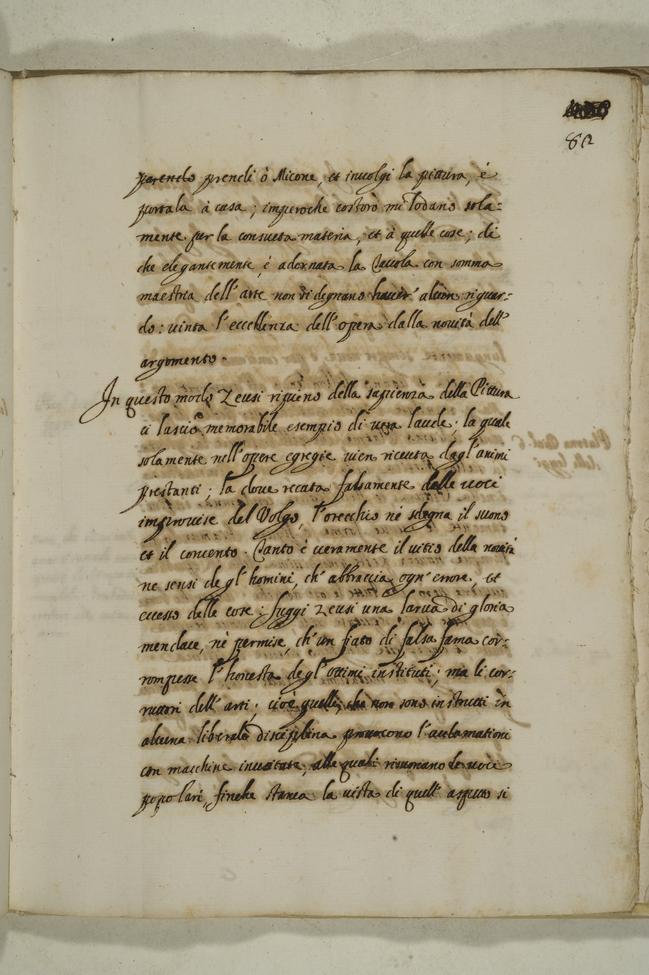 82
prendi ò Micone, et involgi la pittura, è
portala à casa; imperoche costoro mi lodano sola-
mente per la consueta materia, et à quelle cose; di
che elegantemente è adornata la Tavola con somma
maestria dell' arte non si degnano haver' alcun riguar-
do: vinta l'eccellenza dell' opera dalla novità dell'
argomento.
In questo modo Zeusi ripieno della sapienza della Pittura
ci lasciò memorabile esempio di vera laude; la quale
solamente nell' opere egregie vien ricevuta dagl' animi
prestanti; la dove recata falsamente dalle voci
improvise del Volgo, l'orecchio nè sdegna il suono
et il concento. Tanto è veramente il vitio della novità
ne sensi degl' homini, ch' abbraccia ogn' errore, et
eccesso delle cose; fuggì Zeusi una larva di gloria
mendace, nè permise, ch' un fiato di falsa fama cor-
rompesse l' honestà degl' ottimi instituti; ma li cor-
ruttori dell' arti; cioè quelli, che non sono instrutti in
alcuna liberale disciplina provocono l'acclamationi
con macchine inusitate, alle quali rivoltano le voci
popolari, finche stanca la vista di quell' aspetto si